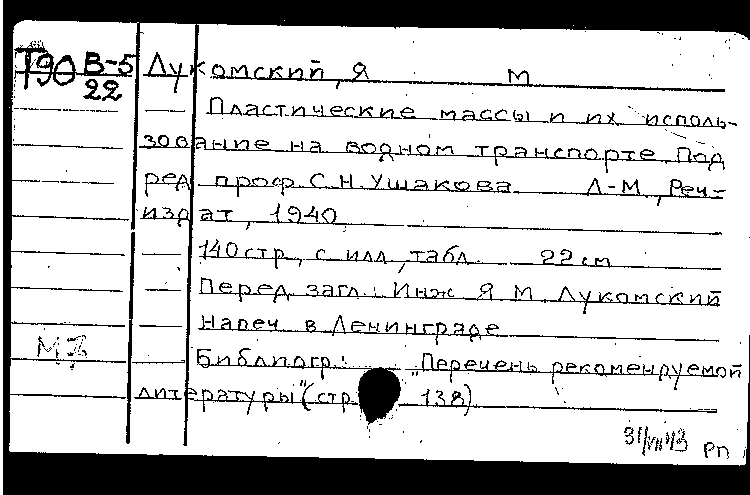 Т90 В-5 Лукомский, Я М
22
Пластические массы и их исполь-
зование на водном транспорте. Под
ред. проф. С.Н. Ушакова Л-М, Реч-
издат, 1940
140 стр., с илл., табл. 22 см
Перед загл.: Инж Я М Лукомский
Напеч в Ленинграде
Библиогр.: "Перечень рекоменруемой
литературы" (стр 138)
31/VII 43 РП